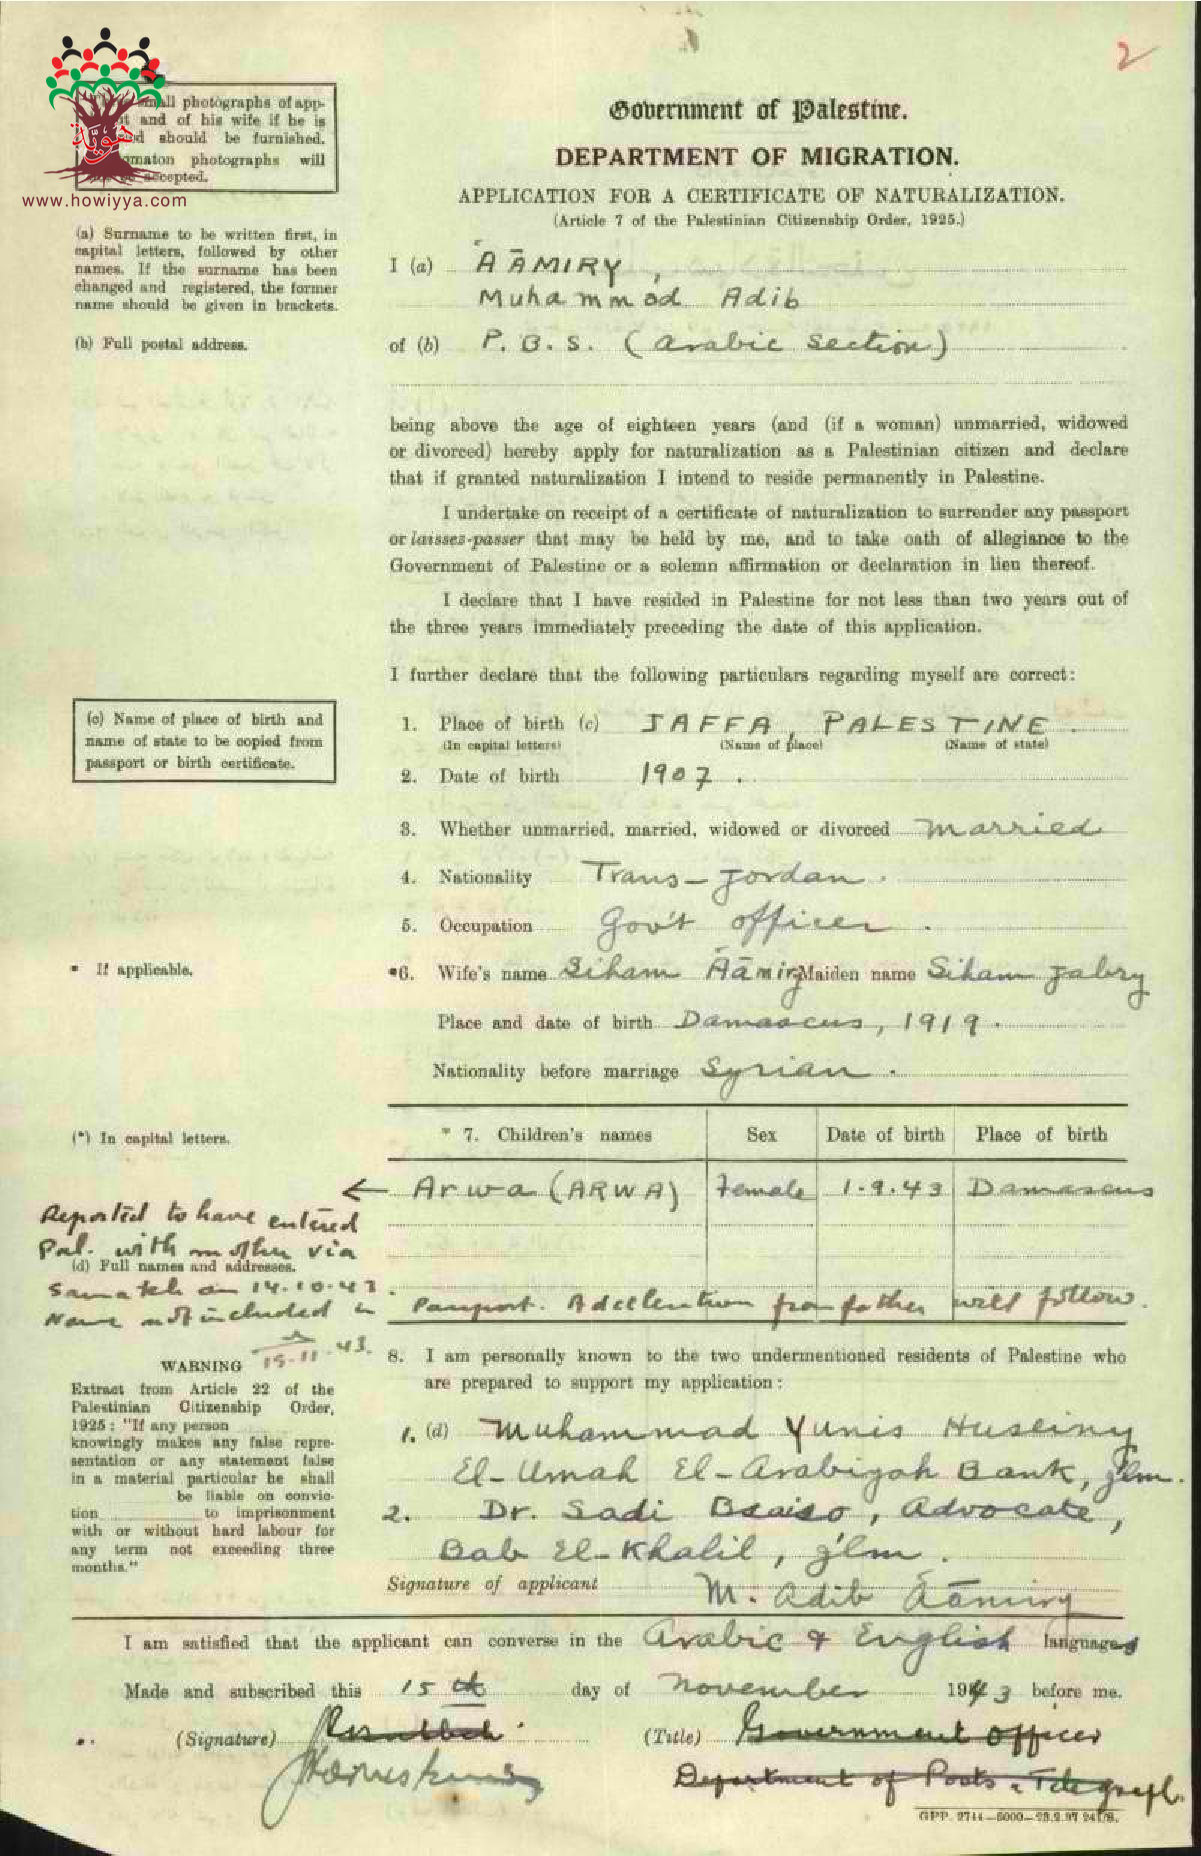 2
www.howiyya.com
small photographs of app-
and of his wife if he is
should be furnished.
photographs will
accepted.
Government of Palestine.
DEPARTMENT OF MIGRATION.
APPLICATION FOR A CERTIFICATE OF NATURALIZATION.
(Article 7 of the Palestinian Citizenship Order, 1925.)
(a) Surname to be written first, in
capital letters, followed by other
names. If the surname has been
changed and registered, the former
name should be given in brackets.
I (a) ĀĀMIRY,
Muhammad Adib
(b) Full postal address.
of (b) P.B.S. (Arabic Section)
being above the age of eighteen years (and (if a woman) unmarried, widowed
or divorced) hereby apply for naturalization as a Palestinian citizen and declare
that if granted naturalization I intend to reside permanently in Palestine.
I undertake on receipt of a certificate of naturalization to surrender any passport
or laisses-passer that may be held by me, and to take oath of allegiance to the
Government of Palestine or a solemn affirmation or declaration in lieu thereof.
I declare that I have resided in Palestine for not less than two years out of
the three years immediately preceding the date of this application.
I further declare that the following particulars regarding myself are correct:
(c) Name of place of birth and
name of state to be copied from
passport or birth certificate.
1. Place of birth (c) JAFFA, PALESTINE.
(In capital letters) (Name of place) (Name of state)
2. Date of birth 1907.
3. Whether unmarried, married, widowed or divorced married
4. Nationality Trans-Jordan.
5. Occupation Gov't officer.
* If applicable.
*6. Wife's name Siham Āāmiry Maiden name Siham Jabry
Place and date of birth Damascus, 1919.
Nationality before marriage Syrian.
(*) In capital letters.
* 7. Children's names Sex Date of birth Place of birth
Arwa (ARWA) Female 1.9.43 Damascus
Reported to have entered
Pal. with mother via
(d) Full names and addresses.
Samakh on 14.10.43.
Name not included in Passport. A declaration from father will follow.
15.11.43.
8. I am personally known to the two undermentioned residents of Palestine who
are prepared to support my application:
WARNING
Extract from Article 22 of the
Palestinian Citizenship Order,
1925: "If any person
knowingly makes any false repre-
sentation or any statement false
in a material particular he shall
be liable on convic-
tion to imprisonment
with or without hard labour for
any term not exceeding three
months."
1. (d) Muhammad Yunis Huseiny
El-Umah El-Arabiyah Bank, Jlm.
2. Dr. Sadi Bsaiso, Advocate,
Bab El-Khalil, Jlm.
Signature of applicant M. Adib Āāmiry
I am satisfied that the applicant can converse in the Arabic & English languages
Made and subscribed this 15th day of November 1943 before me.
(Signature) (Title) Government Officer
Department of Posts & Telegraph.
GPP. 2744—5000—23.2.37 241/8.